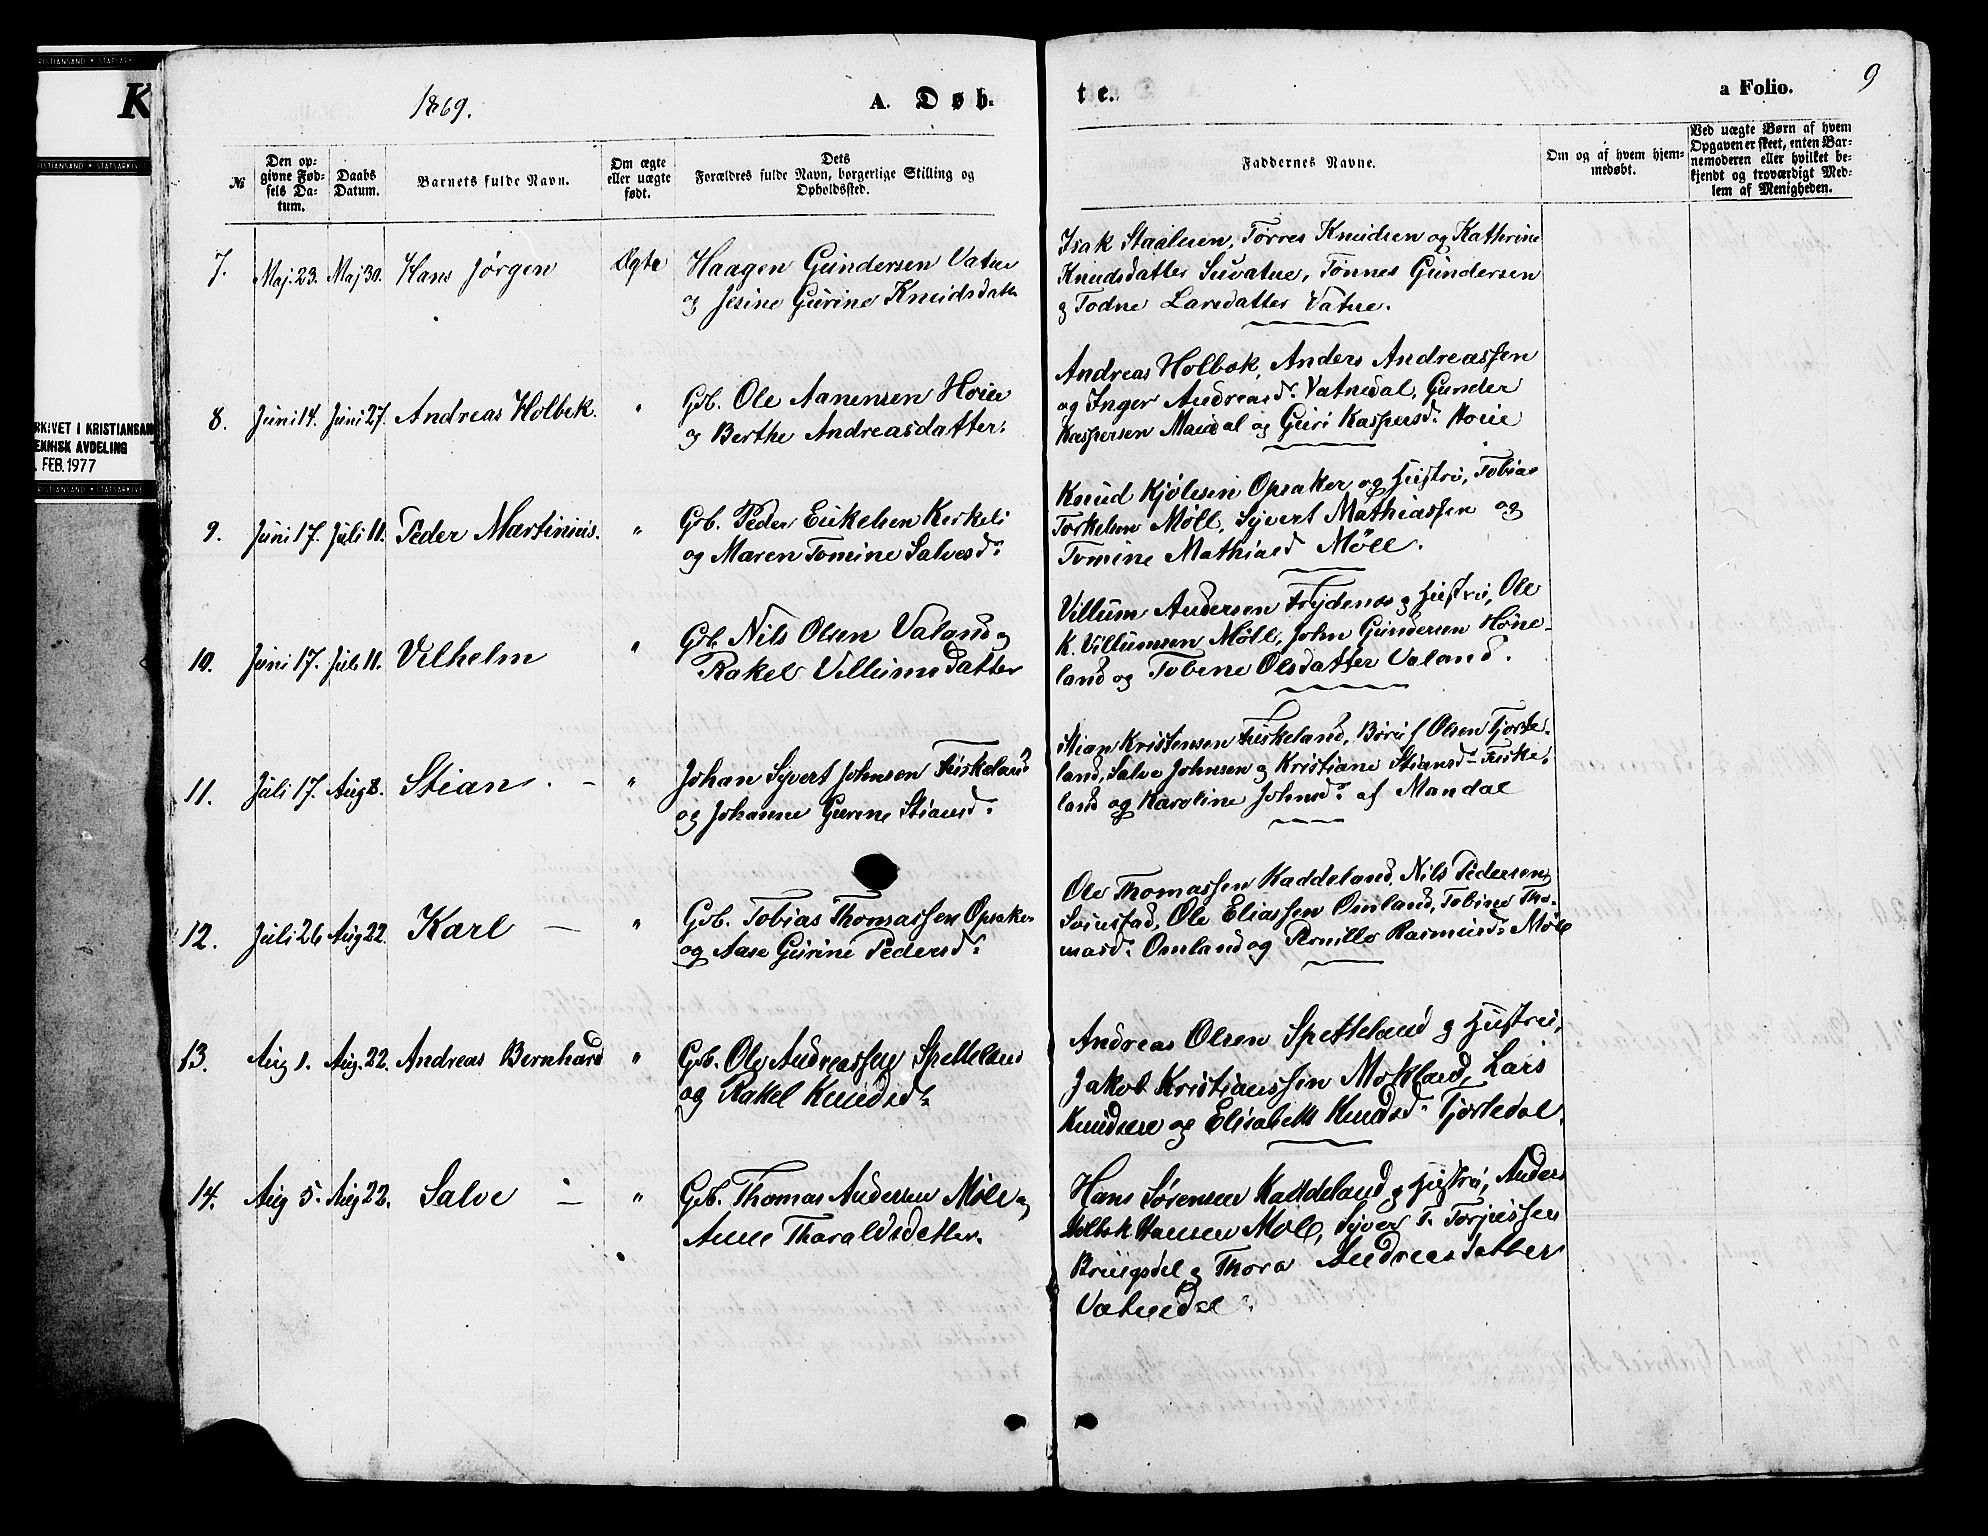 1869.
A. Døb-
te.
a Folio.
9
№
Den op-
givne Fød-
sels Da-
tum.
Daabs
Datum.
Barnets fulde Navn.
Om ægte
eller uægte
født.
Dets
Forældres fulde Navn, borgerlige Stilling og
Opholdssted.
Faddernes Navne.
Om og af hvem hjem-
medøbt.
Ved uægte Børn af hvem
Opgaven er skeet, enten Bar-
nemoderen eller hvilket be-
kjendt og troværdigt Med-
lem af Menigheden.
7.
Maj 23.
Maj 30.
Hans Jørgen
Ægte
Haagen Gundersen Vatne
og Jesine Gurine Knudsdatt
Isak Staalesen, Tørres Knudsen og Kathrine
Knudsdatter Suvatne, Tønnes Gundersen
og Todne Larsdatter Vatne.
8.
Juni 14.
Juni 27.
Andreas Holbek.
"
Gb. Ole Aanensen Høie
og Berthe Andreasdatter.
Andreas Holbek, Anders Andreassen
og Inger Andreasd. Vatnedal, Gunder
Kaspersen Maudal og Guri Kaspersd. Høie
9.
Juni 17.
Juli 11.
Peder Martinius.
"
Gb. Peder Eukelsen Kirkeli
og Maren Tomine Salvesd.
Knud Kjølesen Opsaker og Hustru, Tobias
Torkelsen Møll, Syvert Mathiassen og
Tomine Mathiasd Møll.
10.
Juni 17.
Juli 11.
Vilhelm
"
Gb. Nils Olsen Valand og
Rakel Villumsdatter
Villum Andersen Frydenes og Hustru, Ole
K. Villumsen Møll, John Gundersen Høne-
land og Tobine Olsdatter Valand.
11.
Juli 17.
Aug 8.
Stian. -
"
Johan Syvert Johnsen Fiskeland
og Johanne Gurine Stiansd.
Stian Kristensen Fiskeland, Børuf Olsen Tjorte-
land, Salve Johnsen og Kristiane Stiansd. Fiske-
land og Karoline Johnsd. af Mandal
12.
Juli 26
Aug 22.
Karl -
"
Gb. Tobias Thomassen Opsaker
og Aase Gurine Pedersd.
Ole Thomassen Kaddeland, Nils Pedersen
Svinstad, Ole Eliassen Omland, Tobine Tho-
masd. Omland og Pernille Rasmusd. Møll
13.
Aug 1.
Aug. 22.
Andreas Bernhard
"
Gb. Ole Andreassen Spetteland
og Rakel Knudsd.
Andreas Olsen Spetteland og Hustru,
Jakob Kristianssen Mokland, Lars
Knudsen og Elisabeth Knudsd. Tjortedal.
14.
Aug 5.
Aug 22.
Salve -
"
Gb. Thomas Andersen Møll og
Anne Tharaldsdatter.
Hans Sørensen Kaddeland og Hustru, Anders
Holbek Hansen Møll, Syver T. Torjussen
Bringsdal og Thora Andreasdatter
Vatnedal.
K
RISTIANSAND • STATSARK
RISTIANSAND • STATSARKIVE
RKIVET I KRISTIANSAN
ENNISK AVDELING
. FEB. 1977
RISTIANSAND • STATSARKIVE